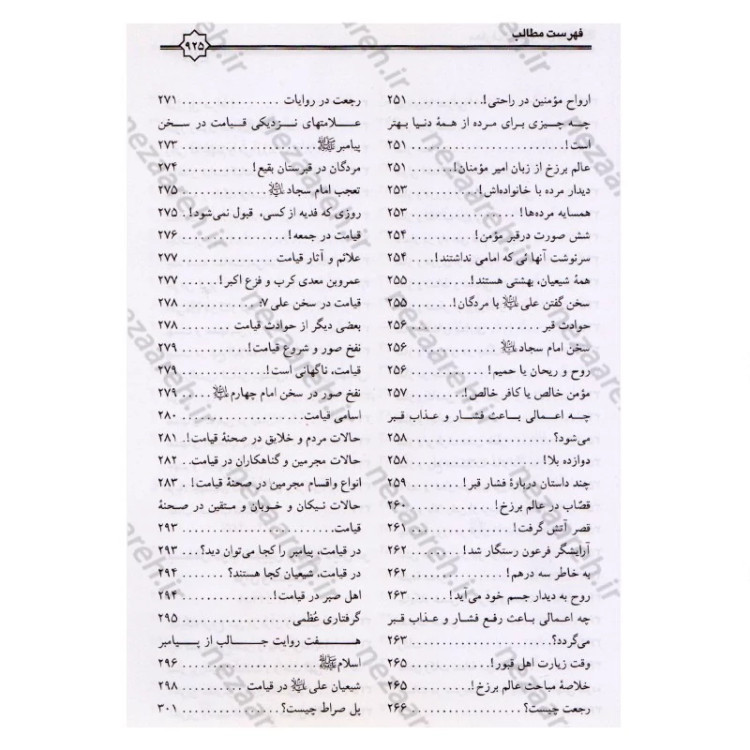 فهرست مطالب
۹۲۵
ارواح مؤمنین در راحتی! ............ ۲۵۱
چه چیزی برای مرده از همهٔ دنیا بهتر
است! ............ ۲۵۱
عالم برزخ از زبان امیر مؤمنان! ............ ۲۵۱
دیدار مرده با خانواده‌اش! ............ ۲۵۳
همسایه مرده‌ها! ............ ۲۵۳
شش صورت درقبر مؤمن! ............ ۲۵۴
سرنوشت آنهائی که امامی نداشتند! ............ ۲۵۴
همهٔ شیعیان، بهشتی هستند! ............ ۲۵۵
سخن گفتن علی با مردگان! ............ ۲۵۵
حوادث قبر ............ ۲۵۶
سخن امام سجاد ............ ۲۵۶
روح و ریحان یا حمیم! ............ ۲۵۶
مؤمن خالص یا کافر خالص! ............ ۲۵۷
چه اعمالی باعث فشار و عذاب قبر
می‌شود؟ ............ ۲۵۸
دوازده بلا! ............ ۲۵۸
چند داستان دربارهٔ فشار قبر! ............ ۲۵۹
قصّاب در عالم برزخ! ............ ۲۶۰
قصر آتش گرفت! ............ ۲۶۱
آرایشگر فرعون رستگار شد! ............ ۲۶۲
به خاطر سه درهم! ............ ۲۶۲
روح به دیدار جسم خود می‌آید! ............ ۲۶۳
چه اعمالی باعث رفع فشار و عذاب قبر
می‌گردد؟ ............ ۲۶۳
وقت زیارت اهل قبور! ............ ۲۶۵
خلاصهٔ مباحث عالم برزخ! ............ ۲۶۵
رجعت چیست؟ ............ ۲۶۶
رجعت در روایات ............ ۲۷۱
علامتهای نزدیکی قیامت در سخن
پیامبر ﷺ ............ ۲۷۳
مردگان در قبرستان بقیع! ............ ۲۷۴
تعجب امام سجاد ............ ۲۷۵
روزی که فدیه از کسی، قبول نمی‌شود! . ۲۷۵
قیامت در جمعه! ............ ۲۷۶
علائم و آثار قیامت ............ ۲۷۷
عمروبن معدی کرب و فزع اکبر! ............ ۲۷۷
قیامت در سخن علی ۷: ............ ۲۷۸
بعضی دیگر از حوادث قیامت ............ ۲۷۸
نفخ صور و شروع قیامت! ............ ۲۷۹
قیامت، ناگهانی است! ............ ۲۷۹
نفخ صور در سخن امام چهارم ............ ۲۷۹
اسامی قیامت ............ ۲۸۰
حالات مردم و خلایق در صحنهٔ قیامت! . ۲۸۱
حالات مجرمین و گناهکاران در قیامت .. ۲۸۲
انواع واقسام مجرمین در صحنهٔ قیامت! . ۲۸۳
حالات نیکان و خوبان و متقین در صحنهٔ
قیامت ............ ۲۹۳
در قیامت، پیامبر را کجا می‌توان دید؟ ... ۲۹۳
در قیامت، شیعیان کجا هستند؟ ............ ۲۹۴
اهل صبر در قیامت! ............ ۲۹۴
گرفتاری عُظمی ............ ۲۹۵
هفت روایت جالب از پیامبر
اسلام ﷺ ............ ۲۹۶
شیعیان علی در قیامت ............ ۲۹۸
پل صراط چیست؟ ............ ۳۰۱
nezaareh.ir